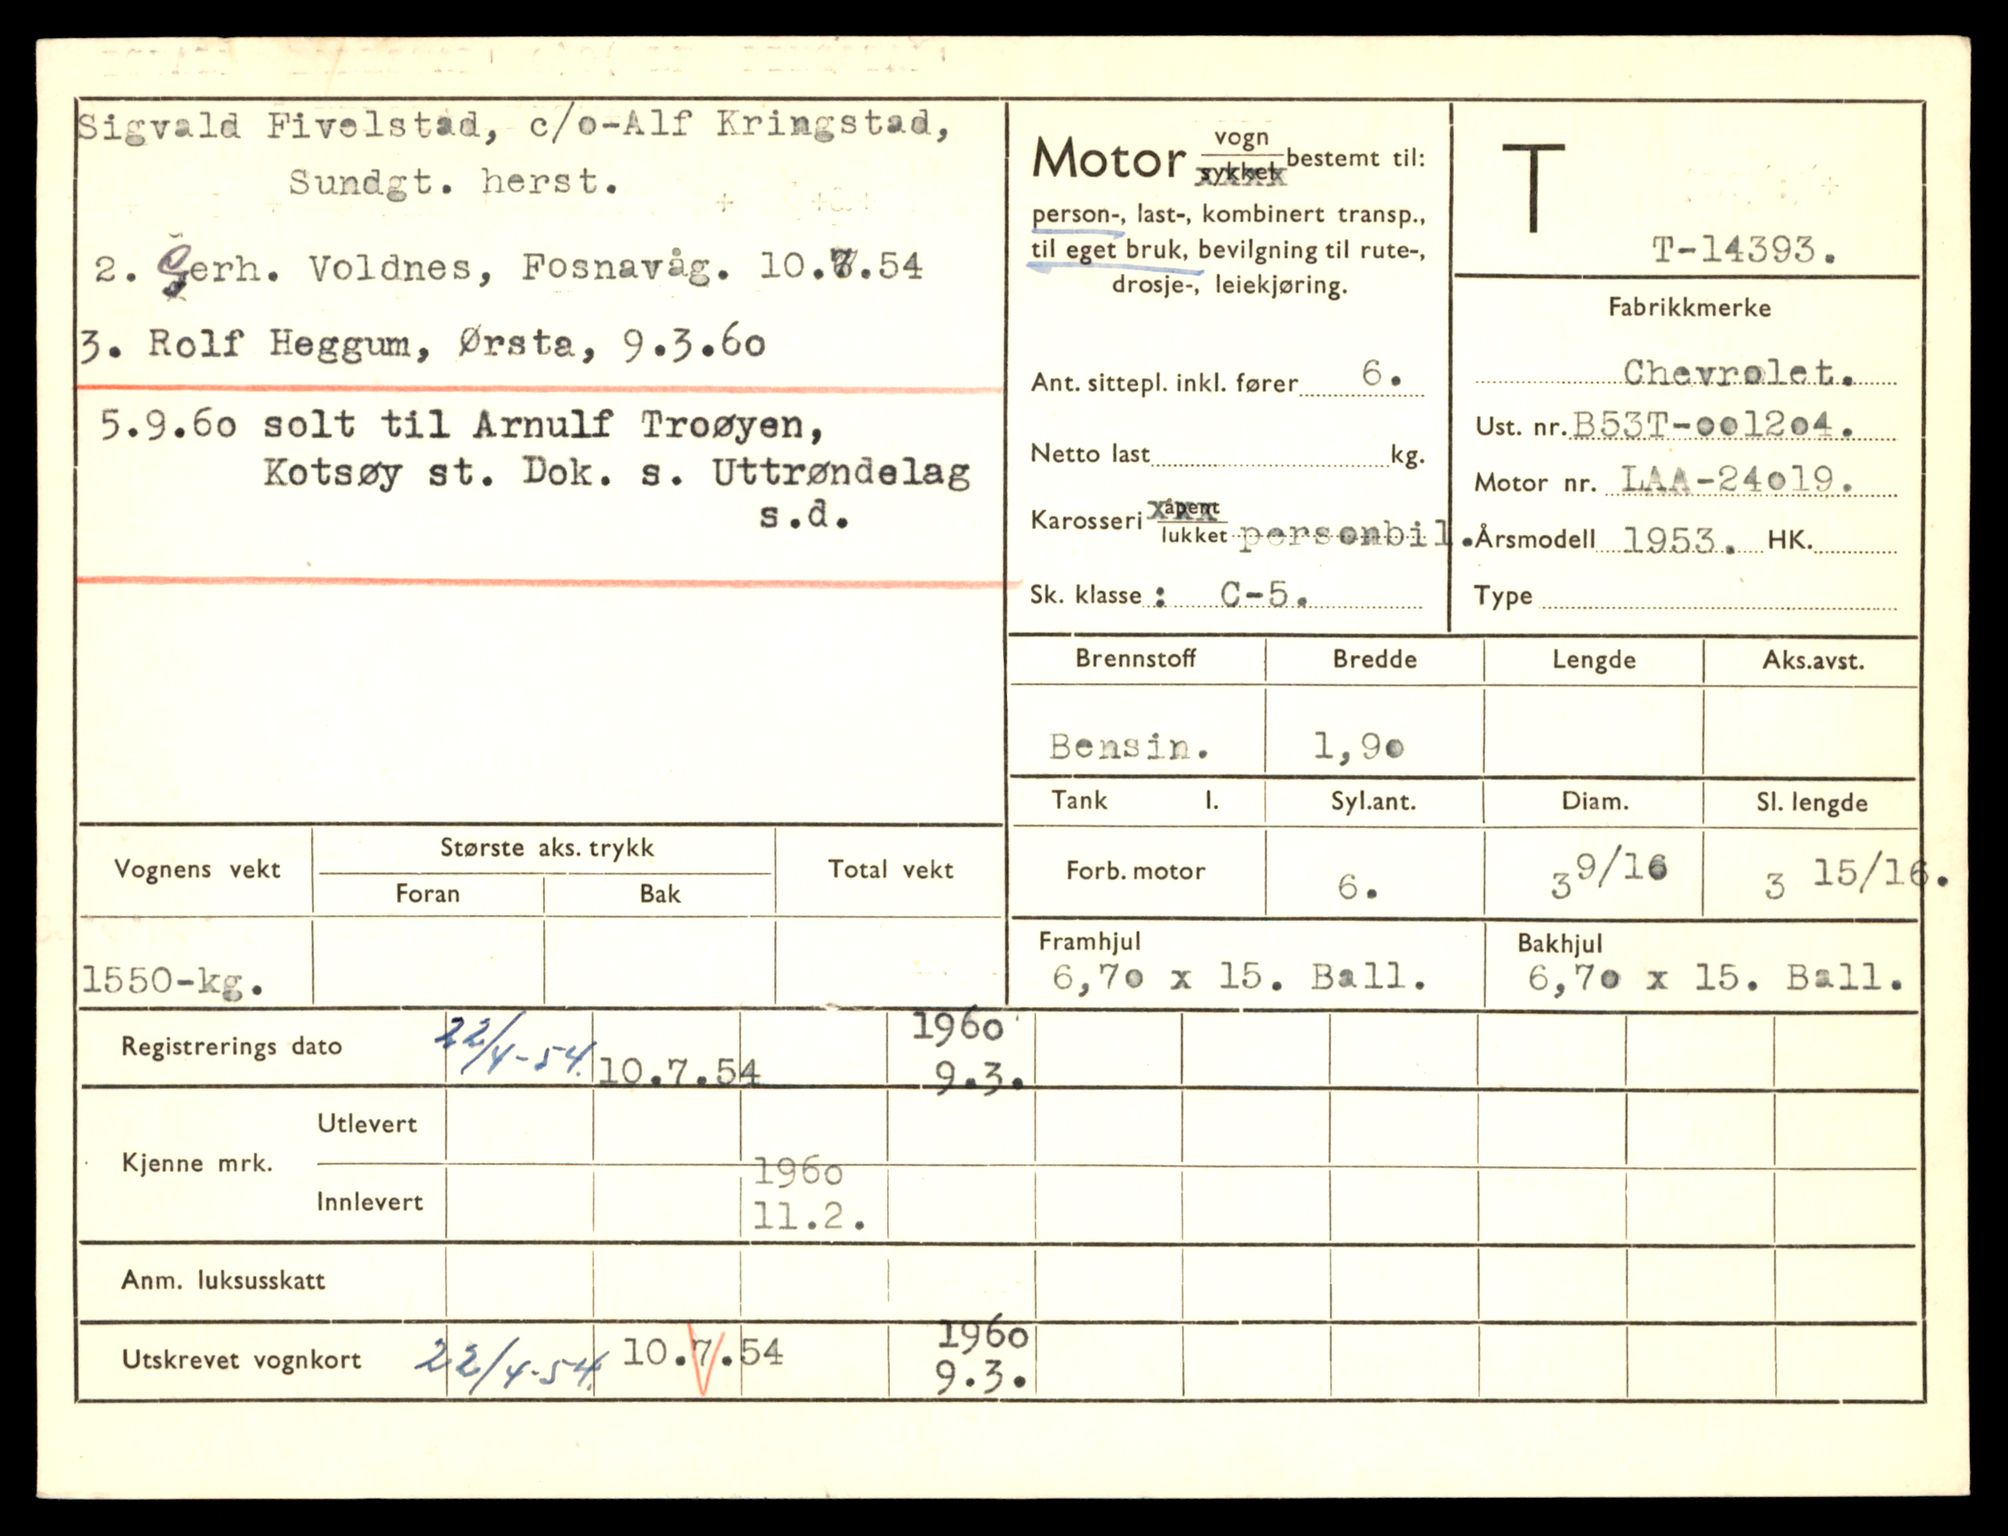 Sigvald Fivelstad, c/o-Alf Kringstad,
Sundgt. herst.
2. Gerh. Voldnes, Fosnavåg. 10.7.54
3. Rolf Heggum, Ørsta, 9.3.60
5.9.60 solt til Arnulf Troøyen,
Kotsøy st. Dok. s. Uttrøndelag
s.d.
Motor vogn
sykkel bestemt til:
person-, last-, kombinert transp.,
til eget bruk, bevilgning til rute-,
drosje-, leiekjøring.
Ant. sittepl. inkl. fører 6.
Netto last kg.
Karosseri åpent
lukket personbil.
Sk. klasse : C-5.
T
T-14393.
Fabrikkmerke
Chevrolet.
Ust. nr. B53T-001204.
Motor nr. LAA-24019.
Årsmodell 1953. HK.
Type
Brennstoff Bredde Lengde Aks.avst.
Bensin. 1,90
Tank l. Syl.ant. Diam. Sl. lengde
Forb. motor 6. 3 9/16 3 15/16.
Framhjul Bakhjul
6,70 x 15. Ball. 6,70 x 15. Ball.
Vognens vekt Største aks. trykk Total vekt
Foran Bak
1550-kg.
Registrerings dato 22/4-54. 10.7.54 1960
9.3.
Kjenne mrk. Utlevert
Innlevert 1960
11.2.
Anm. luksusskatt
Utskrevet vognkort 22/4-54. 10.7.54 1960
9.3.